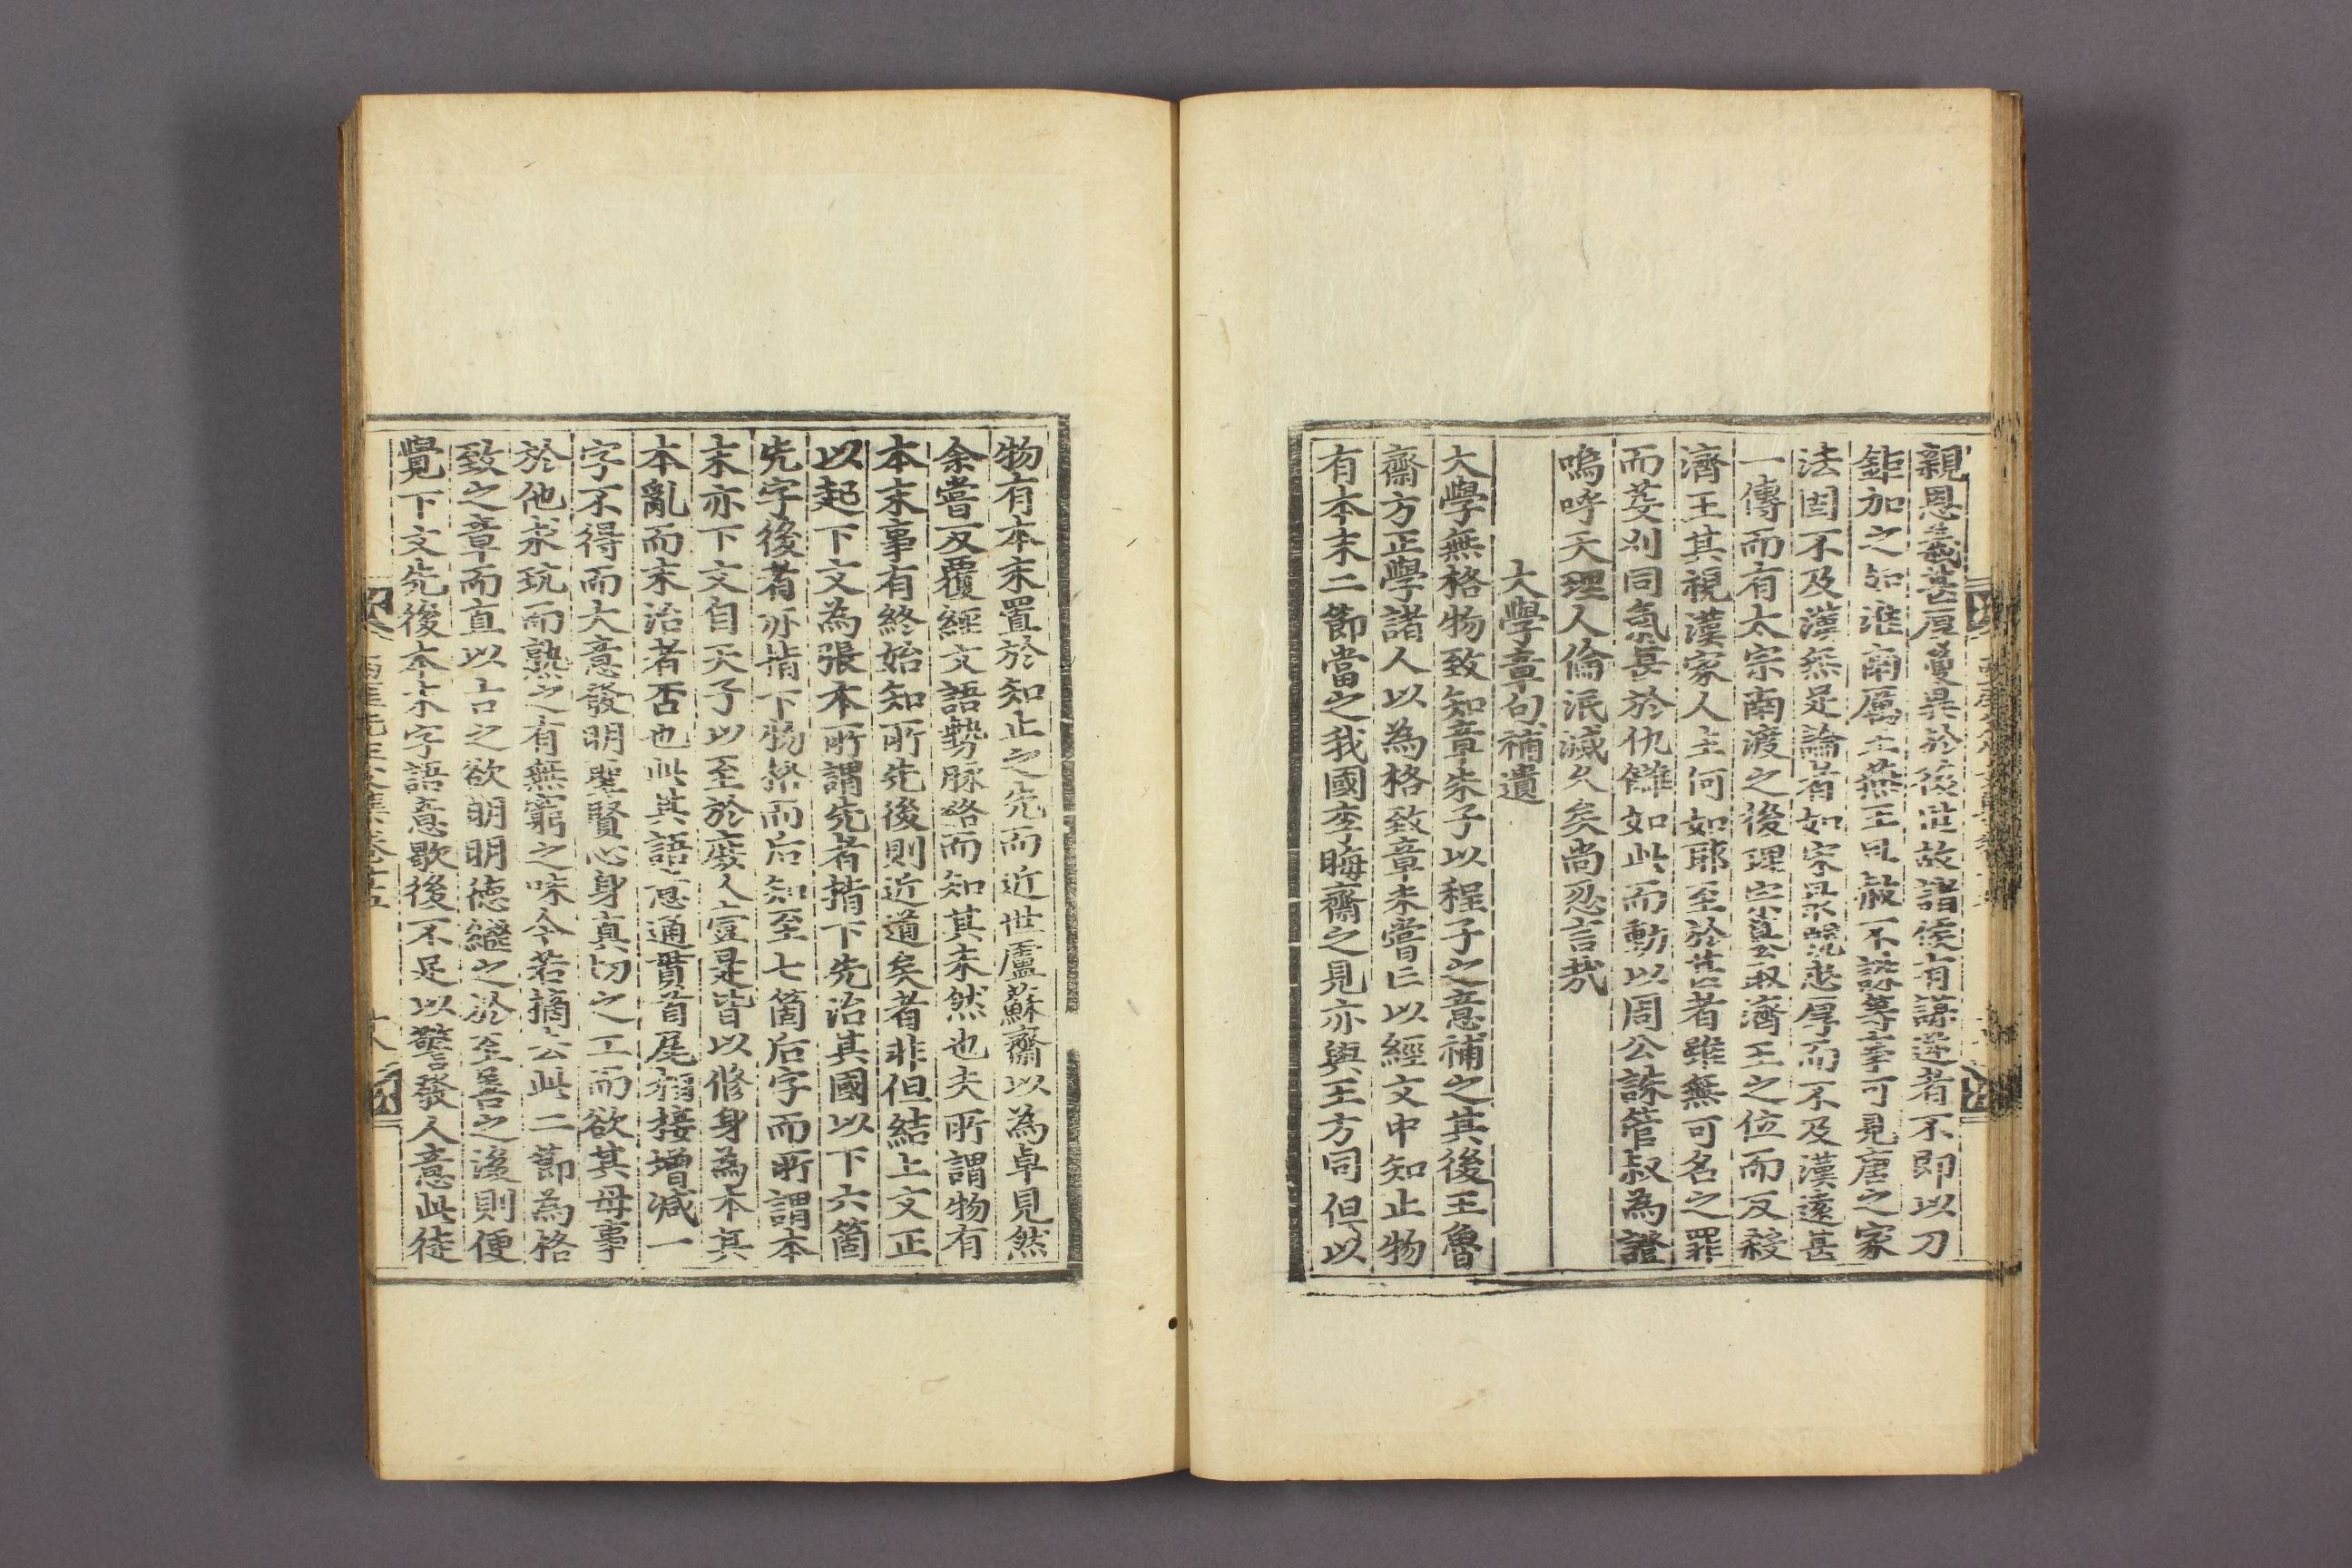 親恩義甚厚夐異於後世故諸侯有謀逆者不即以刀
鉅加之如淮南厲王燕王旦赦不誅等事可見唐之家
法固不及漢無足論者如宋最號忠厚而不及漢遠甚
一傳而有太宗南渡之後理宗旣奪濟王之位而反殺
濟王其視漢家人主何如耶至於苦者雖無可名之罪
而芟刈同氣甚於仇讎如此而動以周公誅管叔為證
嗚呼天理人倫泯滅久矣尚忍言哉
大學章句補遺
大學無格物致知章朱子以程子之意補之其後王魯
齋方正學諸人以為格致章未嘗亡以經文中知止物
有本末二節當之我國李晦齋之見亦與王方同但以
物有本末置於知止之先而近世盧蘇齋以為卓見然
余嘗反覆經文語勢脉絡而知其未然也夫所謂物有
本末事有終始知所先後則近道矣者非但結上文正
以起下文為張本所謂先者指下先治其國以下六箇
先字後者亦指下物格而后知至七箇后字而所謂本
末亦下文自天子以至於庶人壹是皆以修身為本其
本亂而末治者否也此其語意通貫首尾相接增減一
字不得而大意發明聖賢心身真切之工而欲其毋事
於他求玩而熟之有無窮之味今若摘去此二節為格
致之章而直以古之欲明明德繼之於至善之後則便
覺下文先後本末字語意歇後不足以警發人意此徒
西厓先生文集卷十五 十八